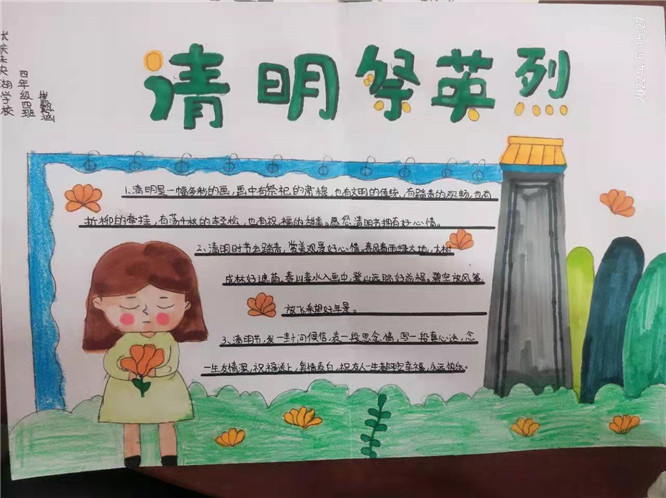 清明祭英烈
四年级四班
1、清明是一幅多彩的画,画中有祭祀的肃穆,也有文明的传统,有踏青的欢畅,也有
折柳的牵挂,有荡千秋的轻松,也有祝福的甜美,愿您清明节拥有好心情。
2、清明时节去踏青,赏美观景好心情,春风春雨绿大地,大树
成林好遮荫,春山春水入画中,登山远眺好前程,
放飞希望好年景。
3、清明节,发一封问候信,表一投思念情,写一投真心话,念
一生友情深,祝福送上,真情表白,祝友人一生都平安幸福,永远快乐。